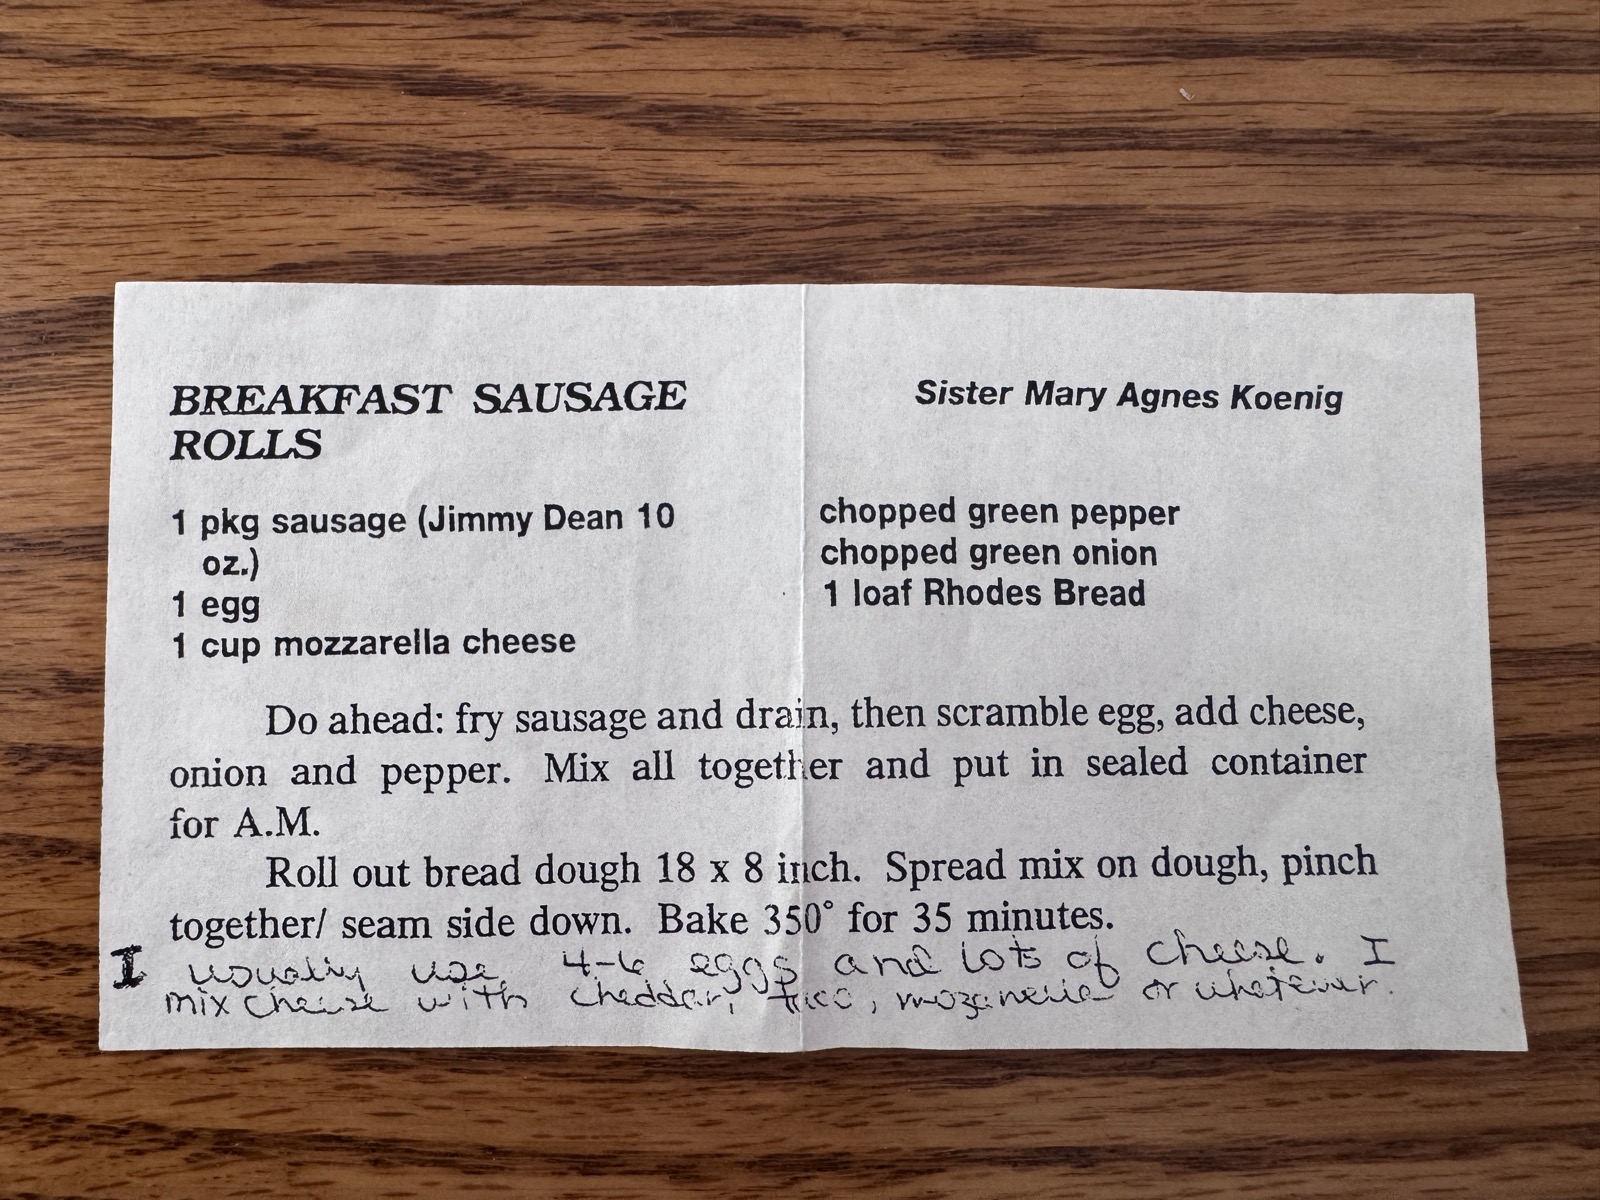 BREAKFAST SAUSAGE
ROLLS
Sister Mary Agnes Koenig
1 pkg sausage (Jimmy Dean 10
oz.)
1 egg
1 cup mozzarella cheese
chopped green pepper
chopped green onion
1 loaf Rhodes Bread
Do ahead: fry sausage and drain, then scramble egg, add cheese,
onion and pepper. Mix all together and put in sealed container
for A.M.
Roll out bread dough 18 x 8 inch. Spread mix on dough, pinch
together/ seam side down. Bake 350° for 35 minutes.
I usually use 4-6 eggs and lots of cheese. I
mix cheese with cheddar, taco, mozarella or whatever.